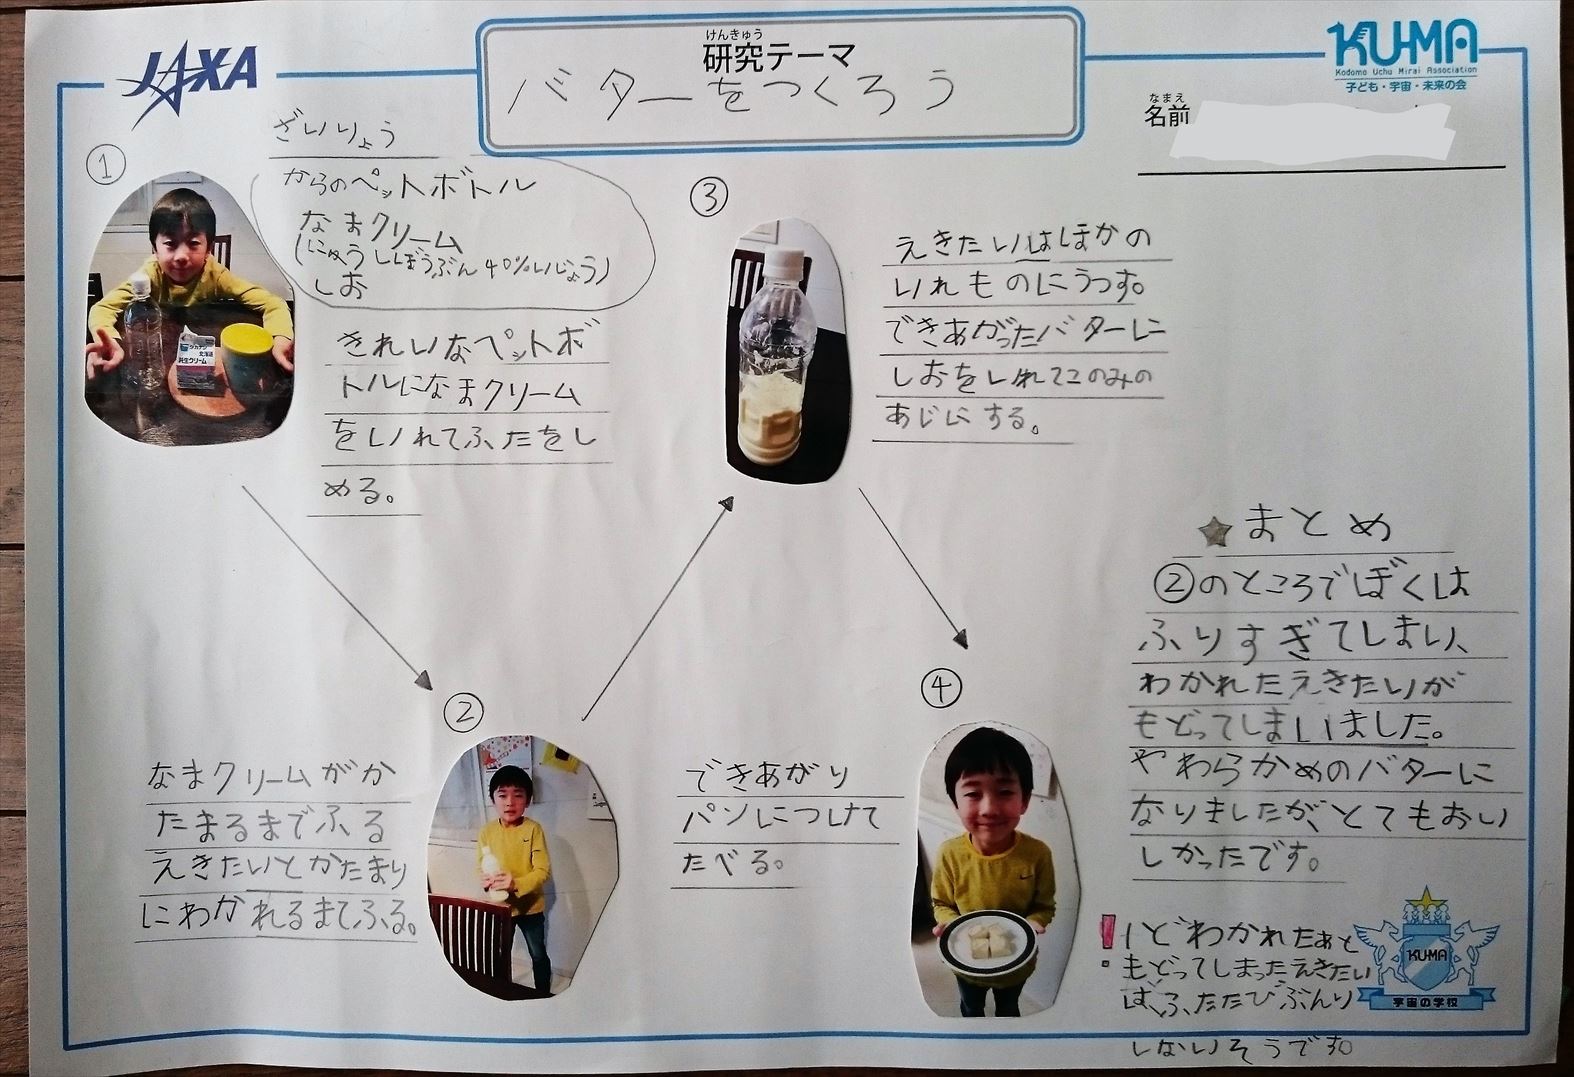 JAXA
けんきゅう
研究テーマ
バターをつくろう
KU-MA
Kodomo Uchu Mirai Association
子ども・宇宙・未来の会
なまえ
名前
①
ざいりょう
からのペットボトル
なまクリーム
(にゅうしぼうぶん40%いじょう)
しお
タカナシ
北海道
純生クリーム
きれいなペットボ
トルになまクリーム
をいれてふたをし
める。
②
なまクリームがか
たまるまでふる
えきたいとかたまり
にわかれるまでふる。
③
えきたいはほかの
いれものにうつす。
できあがったバターに
しおをいれてこのみの
あじにする。
④
できあがり
パンにつけて
たべる。
★まとめ
②のところでぼくは
ふりすぎてしまい、
わかれたえきたいが
もどってしまいました。
やわらかめのバターに
なりましたが、とてもおい
しかったです。
!いどわかれたあと
もどってしまったえきたい
は、ふたたびぶんり
しないそうです。
KUMA
宇宙の学校